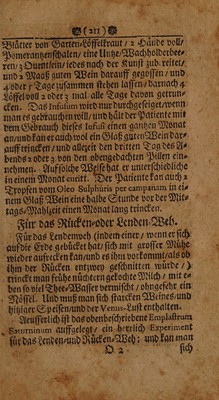 ( 211 )
Blätter von Garten-Löffelkraut / 2 Hände voll /
Pomerantzenschalen / eine Untze / Wachholderbee-
ren / 3 Quentlein / jedes nach der Kunst zubereitet /
und 2 Maaß guten Wein darauff gegossen / und
4 oder 5 Tage zusammen stehen lassen / darnach 4
Löffel voll 2 oder 3 mal alle Tage davon getrun-
cken. Das Infusum wird nur durchgeseiget / wenn
man es gebrauchen will / und hält der Patiente mit
dem Gebrauch dieses Infusi einen gantzen Monat
an / und kan er auch wol ein Glaß guten Wein dar-
auff trincken / und allezeit den dritten Tag des A-
bends 2 oder 3 von den obengedachten Pillen ein-
nehmen. Auf solche Weise hat er unterschiedliche
in einem Monat curirt. Der Patiente kan auch 2
Tropfen vom Oleo Sulphuris per campanam in ei-
nem Glaß Wein eine halbe Stunde vor der Mit-
tags-Mahlzeit einen Monat lang trincken.
Für das Rücken- oder Lenden-Weh.
Für das Lendenweh (indem einer / wenn er sich
auf die Erde gebücket hat / sich mit grosser Mühe
wieder aufrecken kan / und es ihm vorkommt / als ob
ihm der Rücken entzwey geschnitten würde /)
trinckt man frühe nüchtern gekochte Milch / mit e-
ben so viel Thee-Wasser vermischt / ohngefehr ein
Nössel. Und muß man sich starcken Weines / und
hitziger Speisen / und der Venus-Lust enthalten.
Aeusserlich ist das obenbeschriebene Emplastrum
Saturninum auffgelegt / ein herrlich Experiment
für das Lenden- und Rücken-Weh: und kan man
O 2 sich